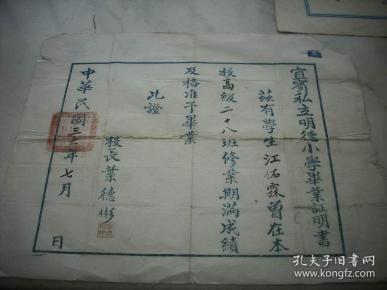 宜賓私立明德小學畢業証明書
茲有學生江佑霖曾在本
校高級二十八班修業期滿成績
及格准予畢業
此證
校長葉德彬
中華民國三十六年七月 日
孔夫子旧书网